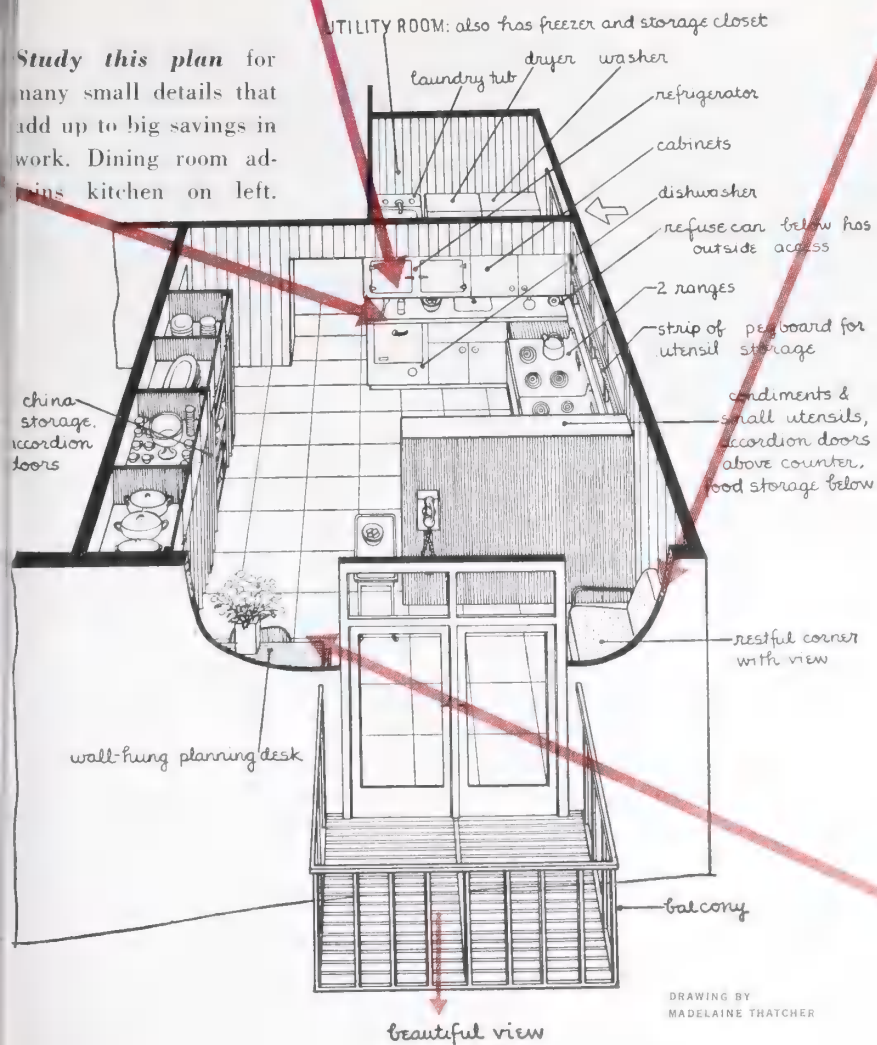 Study this plan for
many small details that
add up to big savings in
work. Dining room ad-
joins kitchen on left.
UTILITY ROOM: also has freezer and storage closet
laundry tub
dryer
washer
refrigerator
cabinets
dishwasher
refuse can below has
outside access
2 ranges
strip of pegboard for
utensil storage
condiments &
small utensils,
accordion doors
above counter,
food storage below
china
storage,
accordion
doors
restful corner
with view
wall-hung planning desk
balcony
beautiful view
DRAWING BY
MADELAINE THATCHER